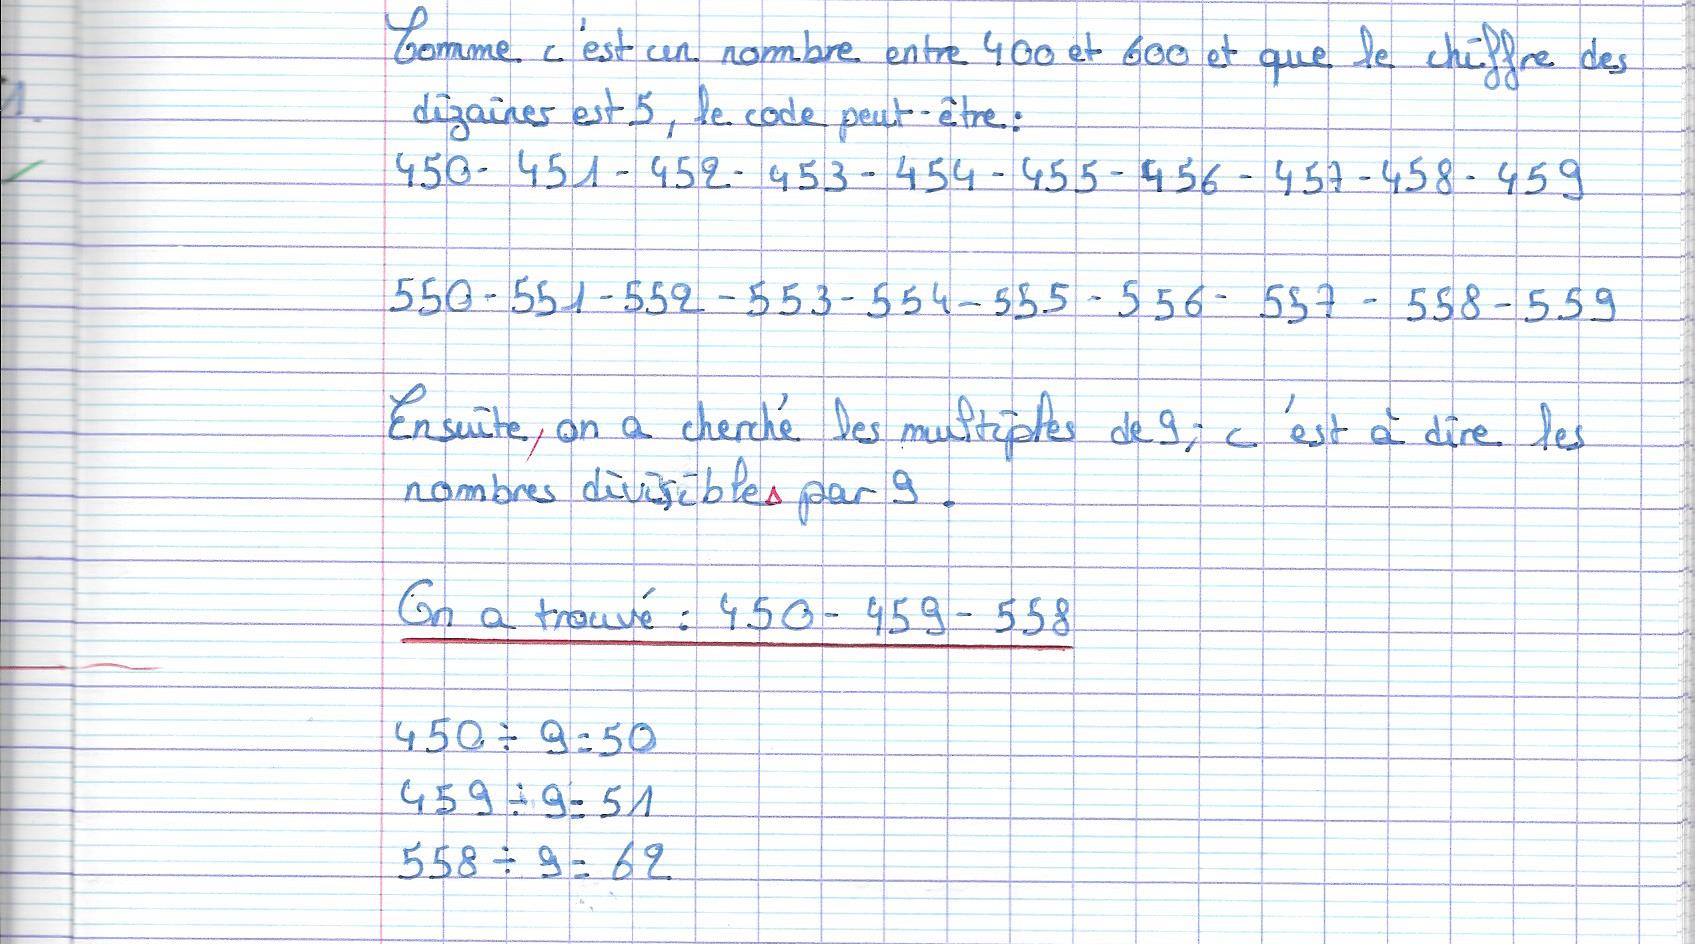 1.
Comme c'est un nombre entre 400 et 600 et que le chiffre des
dizaines est 5, le code peut-être :
450 - 451 - 452 - 453 - 454 - 455 - 456 - 457 - 458 - 459
550 - 551 - 552 - 553 - 554 - 555 - 556 - 557 - 558 - 559
Ensuite, on a cherché les multiples de 9, c'est à dire les
nombres divisibles par 9.
On a trouvé : 450 - 459 - 558
450 ÷ 9 = 50
459 ÷ 9 = 51
558 ÷ 9 = 62